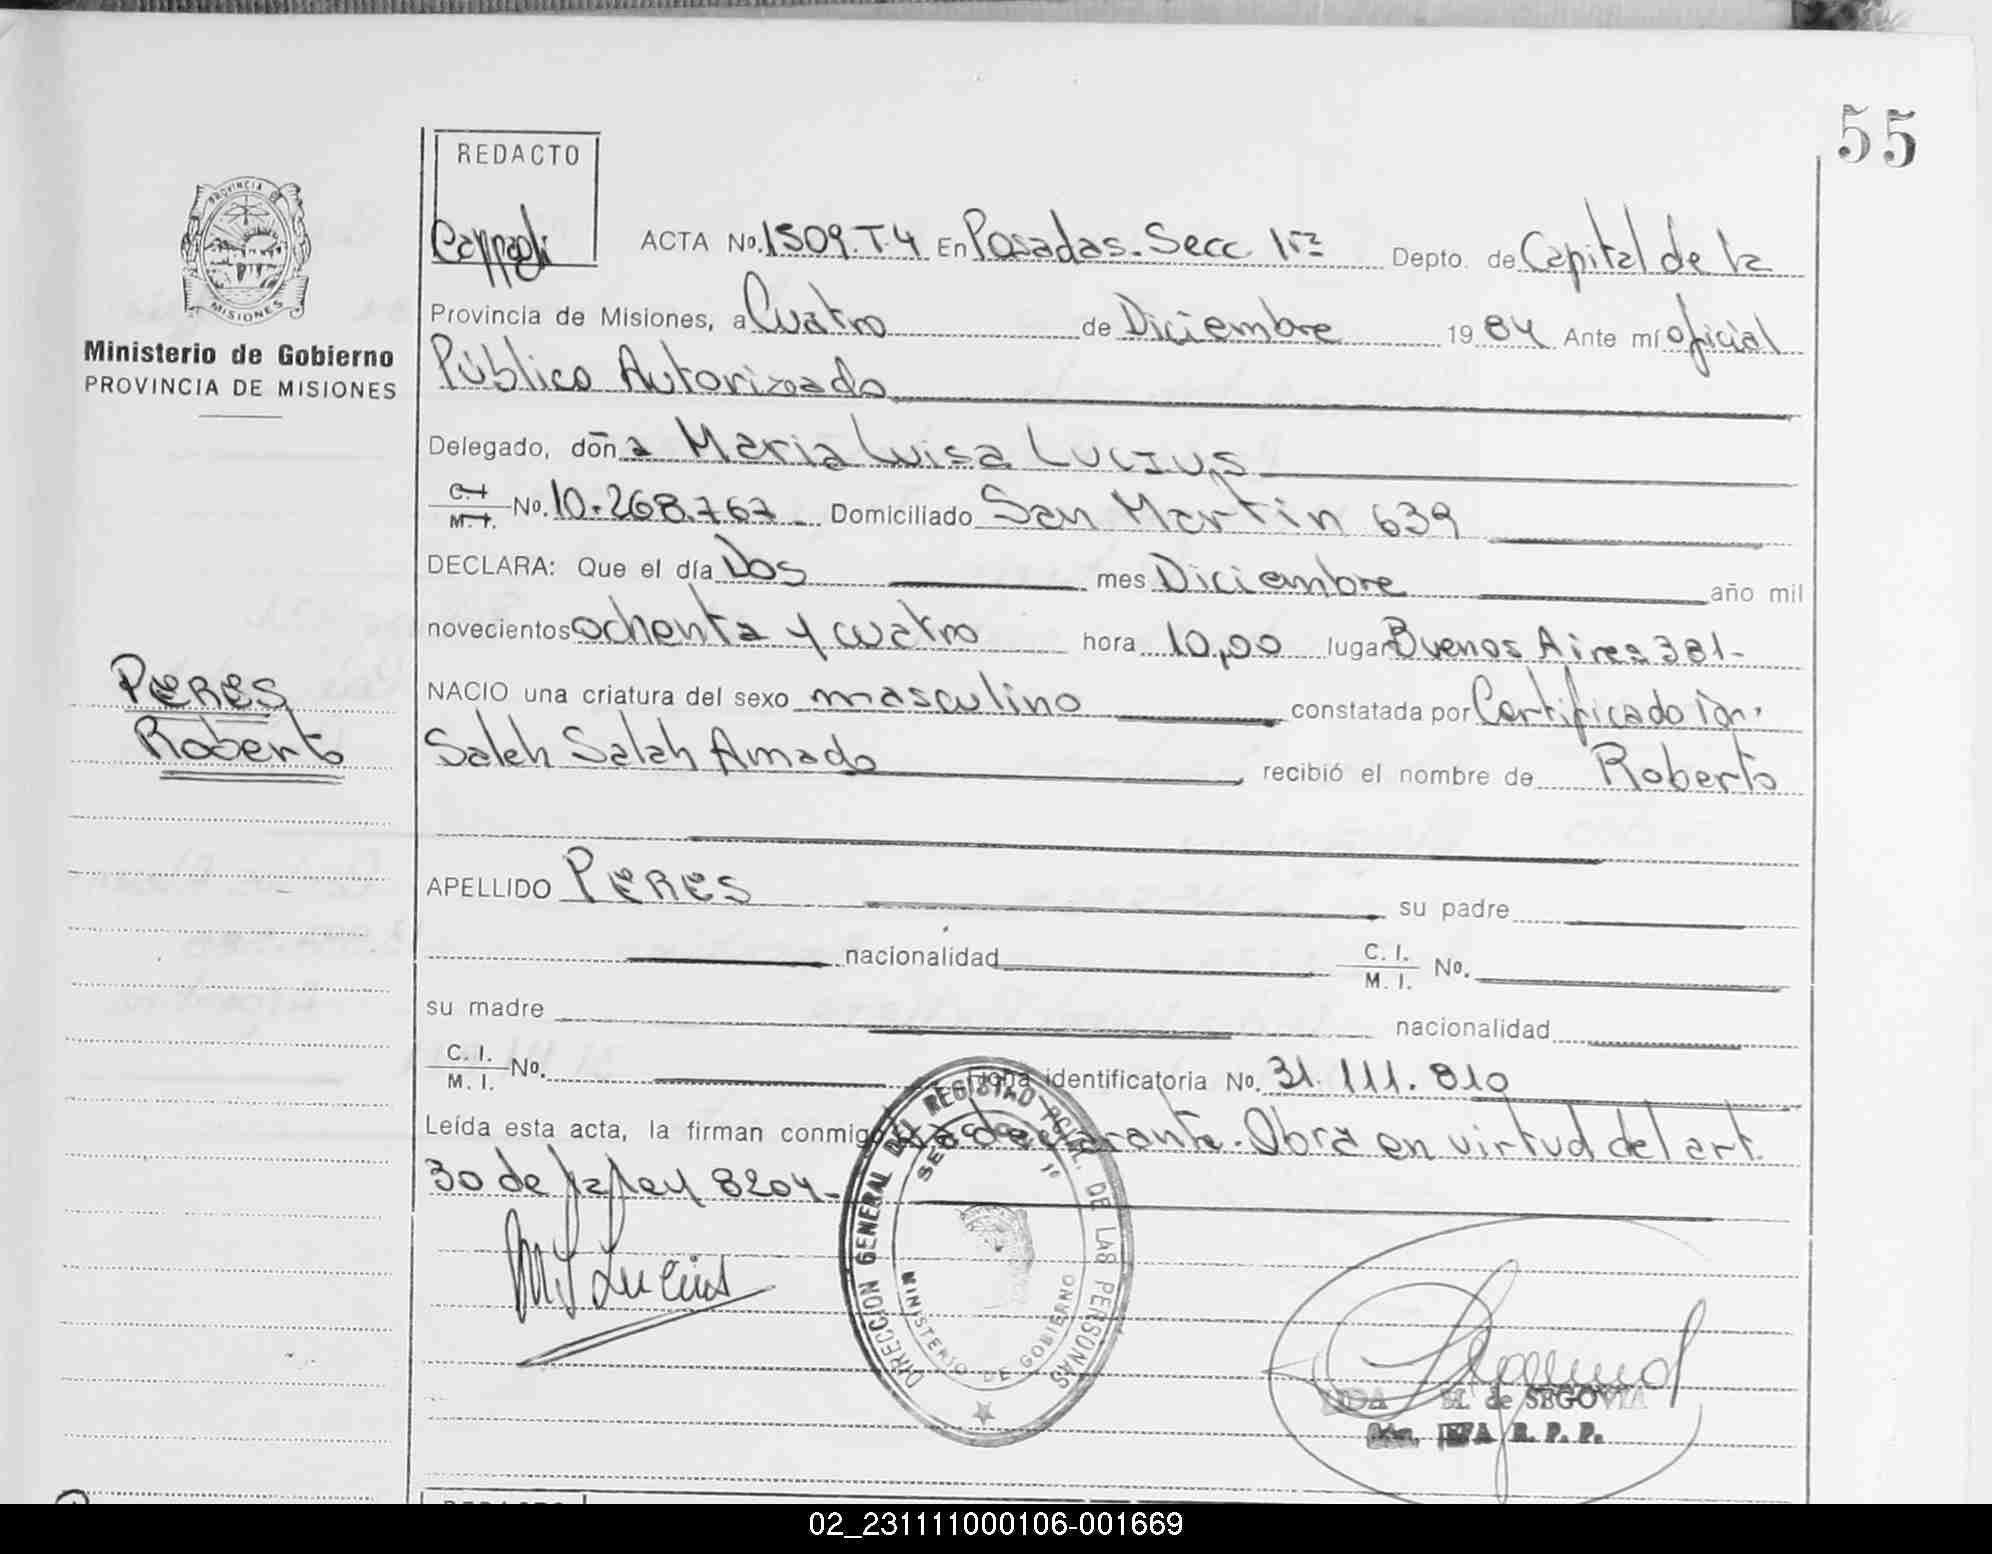 55
REDACTO
PROVINCIA DE
MISIONES
Ministerio de Gobierno
PROVINCIA DE MISIONES
ACTA No. 1509.T.4 En Posadas. Secc. 1ra Depto. de Capital de la
Provincia de Misiones, a Cuatro de Diciembre 1984 Ante mí oficial
Público Autorizado
Delegado, doña Maria Luisa LUCIUS
C.I. M.I. No. 10.268.767 Domiciliado San Martin 639
DECLARA: Que el día Dos mes Diciembre año mil
novecientos ochenta y cuatro hora 10,00 lugar Buenos Aires 381-
PERES
Roberto
NACIO una criatura del sexo masculino constatada por Certificado
Saleh Salah Amado recibió el nombre de Roberto
APELLIDO PERES su padre
nacionalidad C. I. M. I. No.
su madre nacionalidad
C. I. M. I. No. identificatoria No. 31.111.810
Leída esta acta, la firman conmigo la declarante. Obra en virtud del art.
30 de la ley 8204-
M L Lucius
DIRECCION GENERAL DEL REGISTRO PCIAL. DE LAS PERSONAS
MINISTERIO DE GOBIERNO
M. de SEGOVIA
JEFA R. P. P.
02_231111000106-001669